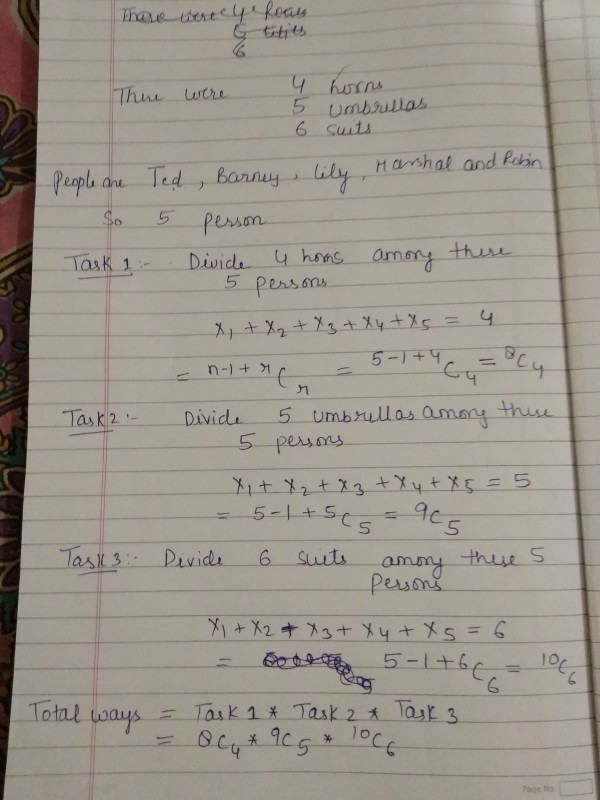 There were 4 
5 
6
There were 4 horns
5 umbrellas
6 suits
People are Ted, Barney, Lily, Marshal and Robin
So 5 person
Task 1:- Divide 4 horns among these
5 persons
x₁ + x₂ + x₃ + x₄ + x₅ = 4
= ⁿ⁻¹⁺ʳCᵣ = ⁵⁻¹⁺⁴C₄ = ⁸C₄
Task 2:- Divide 5 umbrellas among these
5 persons
x₁ + x₂ + x₃ + x₄ + x₅ = 5
= 5-1+5C₅ = 9C₅
Task 3:- Divide 6 suits among these 5
Persons
x₁ + x₂ + x₃ + x₄ + x₅ = 6
= 5-1+6C₆ = ¹⁰C₆
Total ways = Task 1 * Task 2 * Task 3
= 8C₄ * 9C₅ * ¹⁰C₆
Page No.